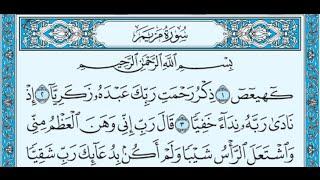 سُورَةُ مَرْيَمَ
بِسْمِ اللَّهِ الرَّحْمَٰنِ الرَّحِيمِ
كٓهيعٓصٓ ١ ذِكْرُ رَحْمَتِ رَبِّكَ عَبْدَهُۥ زَكَرِيَّآ ٢ إِذْ
نَادَىٰ رَبَّهُۥ نِدَآءً خَفِيًّا ٣ قَالَ رَبِّ إِنِّى وَهَنَ الْعَظْمُ مِنِّى
وَاشْتَعَلَ الرَّأْسُ شَيْبًا وَلَمْ أَكُنۢ بِدُعَآئِكَ رَبِّ شَقِيًّا